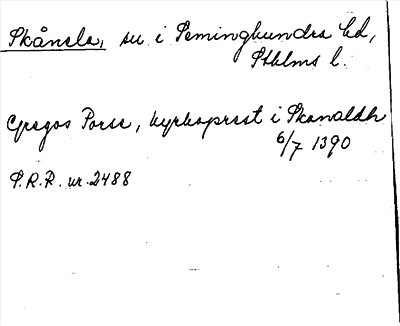 Skånela, sn i Seminghundra hd,
Sthlms l.
Gregos Porse, kyrkoprest i Skanaldh
6/7 1390
S.R.P. nr. 2488